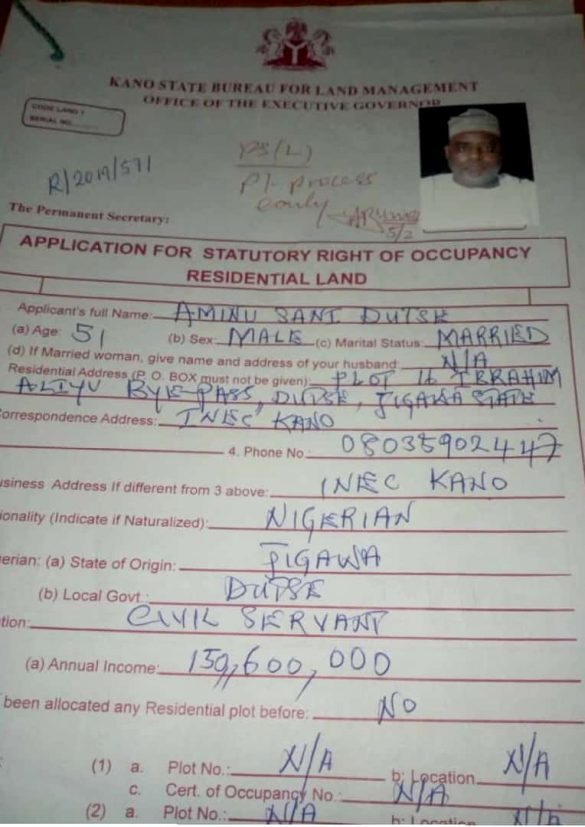 KANO STATE BUREAU FOR LAND MANAGEMENT
OFFICE OF THE EXECUTIVE GOVERNOR
CODE LAND 1
SERIAL NO.
R/2019/571
PS(L)
P/- process
The Permanent Secretary:
5/2
APPLICATION FOR STATUTORY RIGHT OF OCCUPANCY
RESIDENTIAL LAND
Applicant's full Name: AMINU SANI DUTSE
(a) Age: 51 (b) Sex: MALE (c) Marital Status: MARRIED
(d) If Married woman, give name and address of your husband: N/A
Residential Address (P. O. BOX must not be given): PLOT 16 IBRAHIM
ALIYU BYE-PASS, DUTSE, JIGAWA STATE
Correspondence Address: INEC KANO
4. Phone No: 08035902447
usiness Address If different from 3 above: INEC KANO
ionality (Indicate if Naturalized): NIGERIAN
erian: (a) State of Origin: JIGAWA
(b) Local Govt : DUTSE
tion: CIVIL SERVANT
(a) Annual Income: 159,600,000
been allocated any Residential plot before: NO
(1) a. Plot No.: N/A b: Location N/A
c. Cert. of Occupancy No.: N/A
(2) a. Plot No.: N/A b: Location N/A